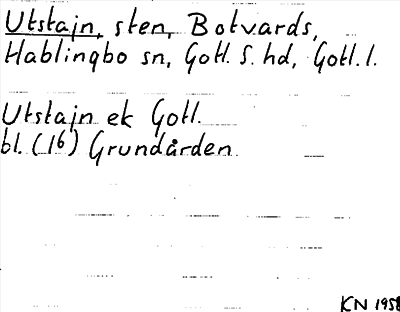 Utstajn, sten, Botvards,
Hablingbo sn, Gotl. S. hd, Gotl. l.
Utstajn ek Gotl.
bl. (16) Grundården
KN 1958